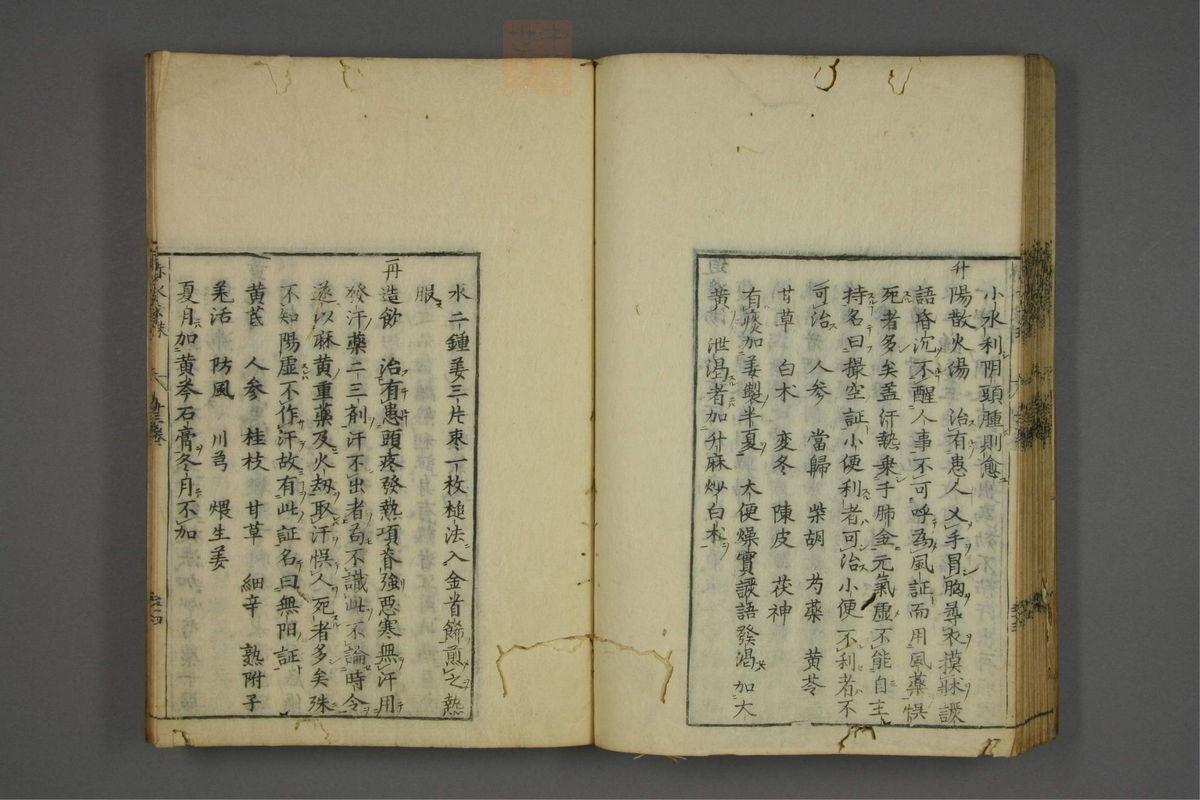 小水利陰頭腫則愈
升陽散火湯 治有患人乂手冒胸尋衣摸牀譫
語昏沉不醒人事不可呼為風証而用風藥悞
死者多矣盖汗熱乗于肺金元氣虛不能自主
持名曰撮空証小便利者可治小便不利者不
可治 人參 當歸 柴胡 芍藥 黄芩
甘草 白术 麥冬 陳皮 茯神
有痰加姜製半夏 大便燥實譫語發渴 加大
黄 泄漏者加升麻炒白术
水二鍾姜三片枣一枚槌法入金首餙煎之熱
服
再造飲 治有患頭疼發熱項脊強惡寒無汗用
發汗藥二三剤汗不出者苟不識此不論時令
遂以麻黄重藥及火刼取汗悞人死者多矣殊
不知陽虚不作汗故有此証名曰無阳証
黄芪 人參 桂枝 甘草 細辛 熟附子
羌活 防風 川芎 煨生姜
夏月加黄芩石膏冬月不加